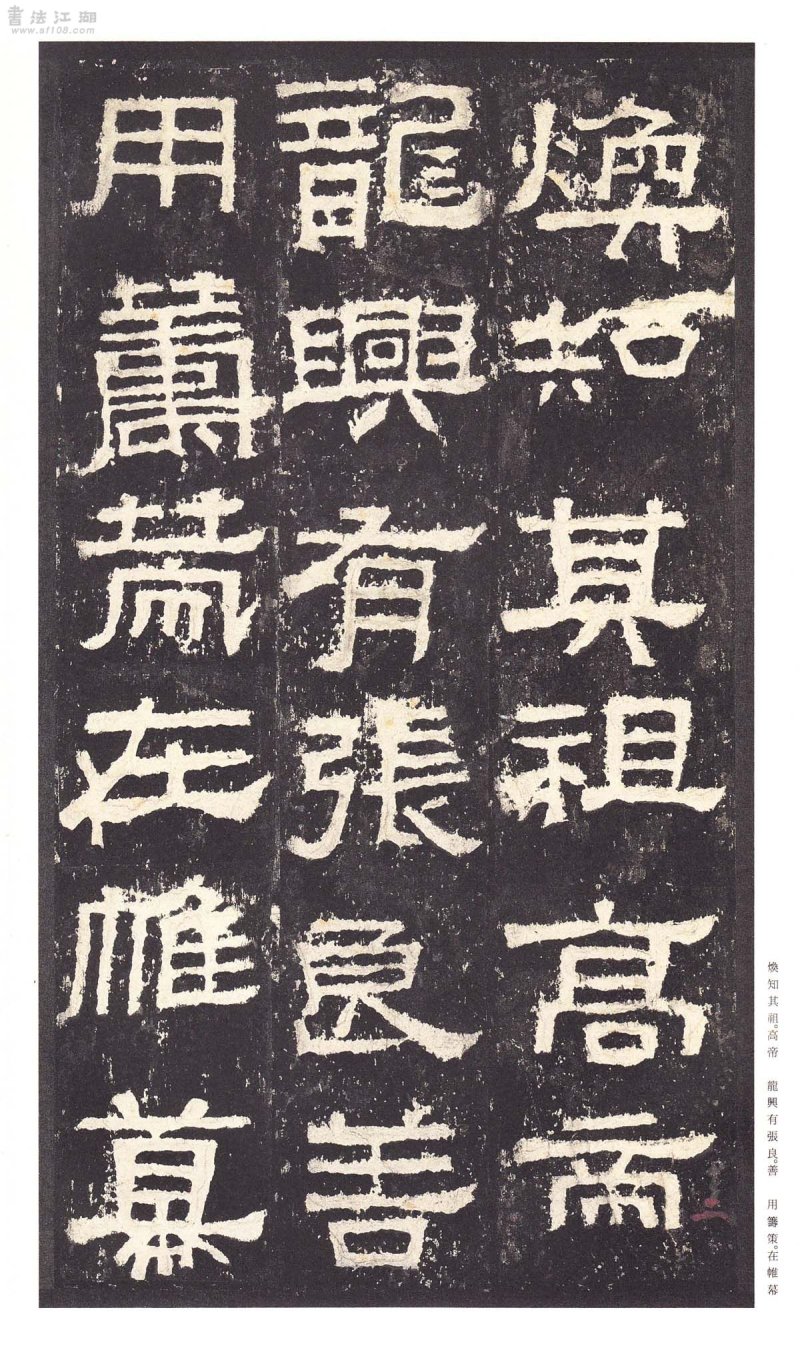 書法江湖
www.af108.com
煥知其祖高帝
龍興有張良善
用籌策在帷幕
二
煥知其祖。高帝 龍興有張良。善 用籌策。在帷幕